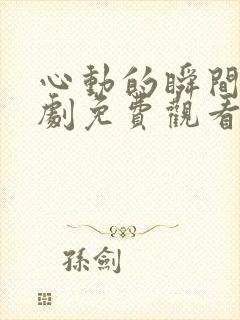 心動的瞬間
劇免費觀看
孫劍